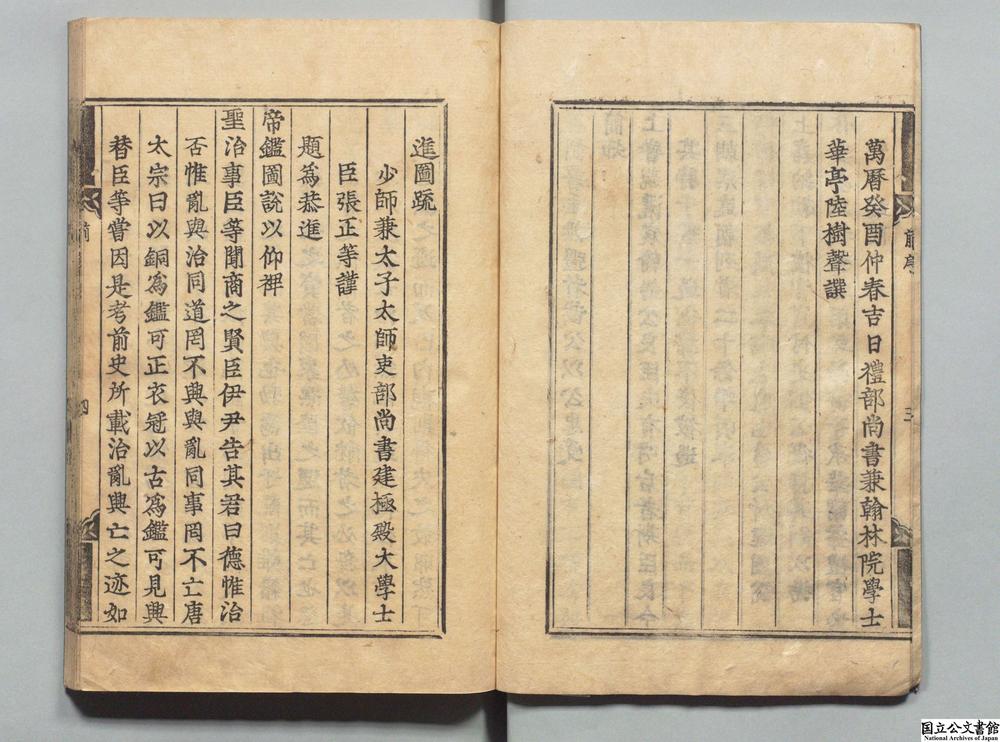 萬曆癸酉仲春吉日禮部尚書兼翰林院學士
華亭陸樹聲譔
前序
三
進圖疏
少師兼太子太師吏部尚書建極殿大學士
臣張正等謹
題為恭進
帝鑑圖說以仰裨
聖治事臣等聞商之賢臣伊尹告其君曰德惟治
否惟亂與治同道罔不興與亂同事罔不亡唐
太宗曰以銅為鑑可正衣冠以古為鑑可見興
替臣等嘗因是考前史所載治亂興亡之迹如
前
四
国立公文書館
National Archives of Japan